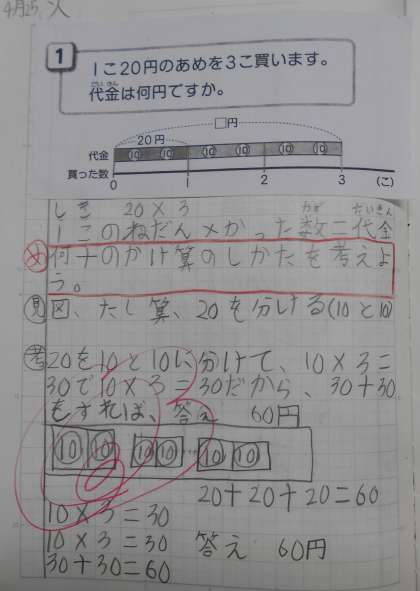 4月25 火
1
1こ20円のあめを3こ買います。
だいきん
代金は何円ですか。
□円
20円
代金 10 10 10 10 10 10
買った数
0 1 2 3 (こ)
しき 20×3
かず だいきん
1このねだん×かった数=代金
め 何十のかけ算のしかたを考えよ
う。
見 図、たし算、20を分ける(10と10)
考 20を10と10に分けて、10×3=
30で10×3=30だから、30+30
をすれば、答え 60円
10 10 10 10 … 10 10
20+20+20=60
10×3=30
10×3=30 答え 60円
30+30=60